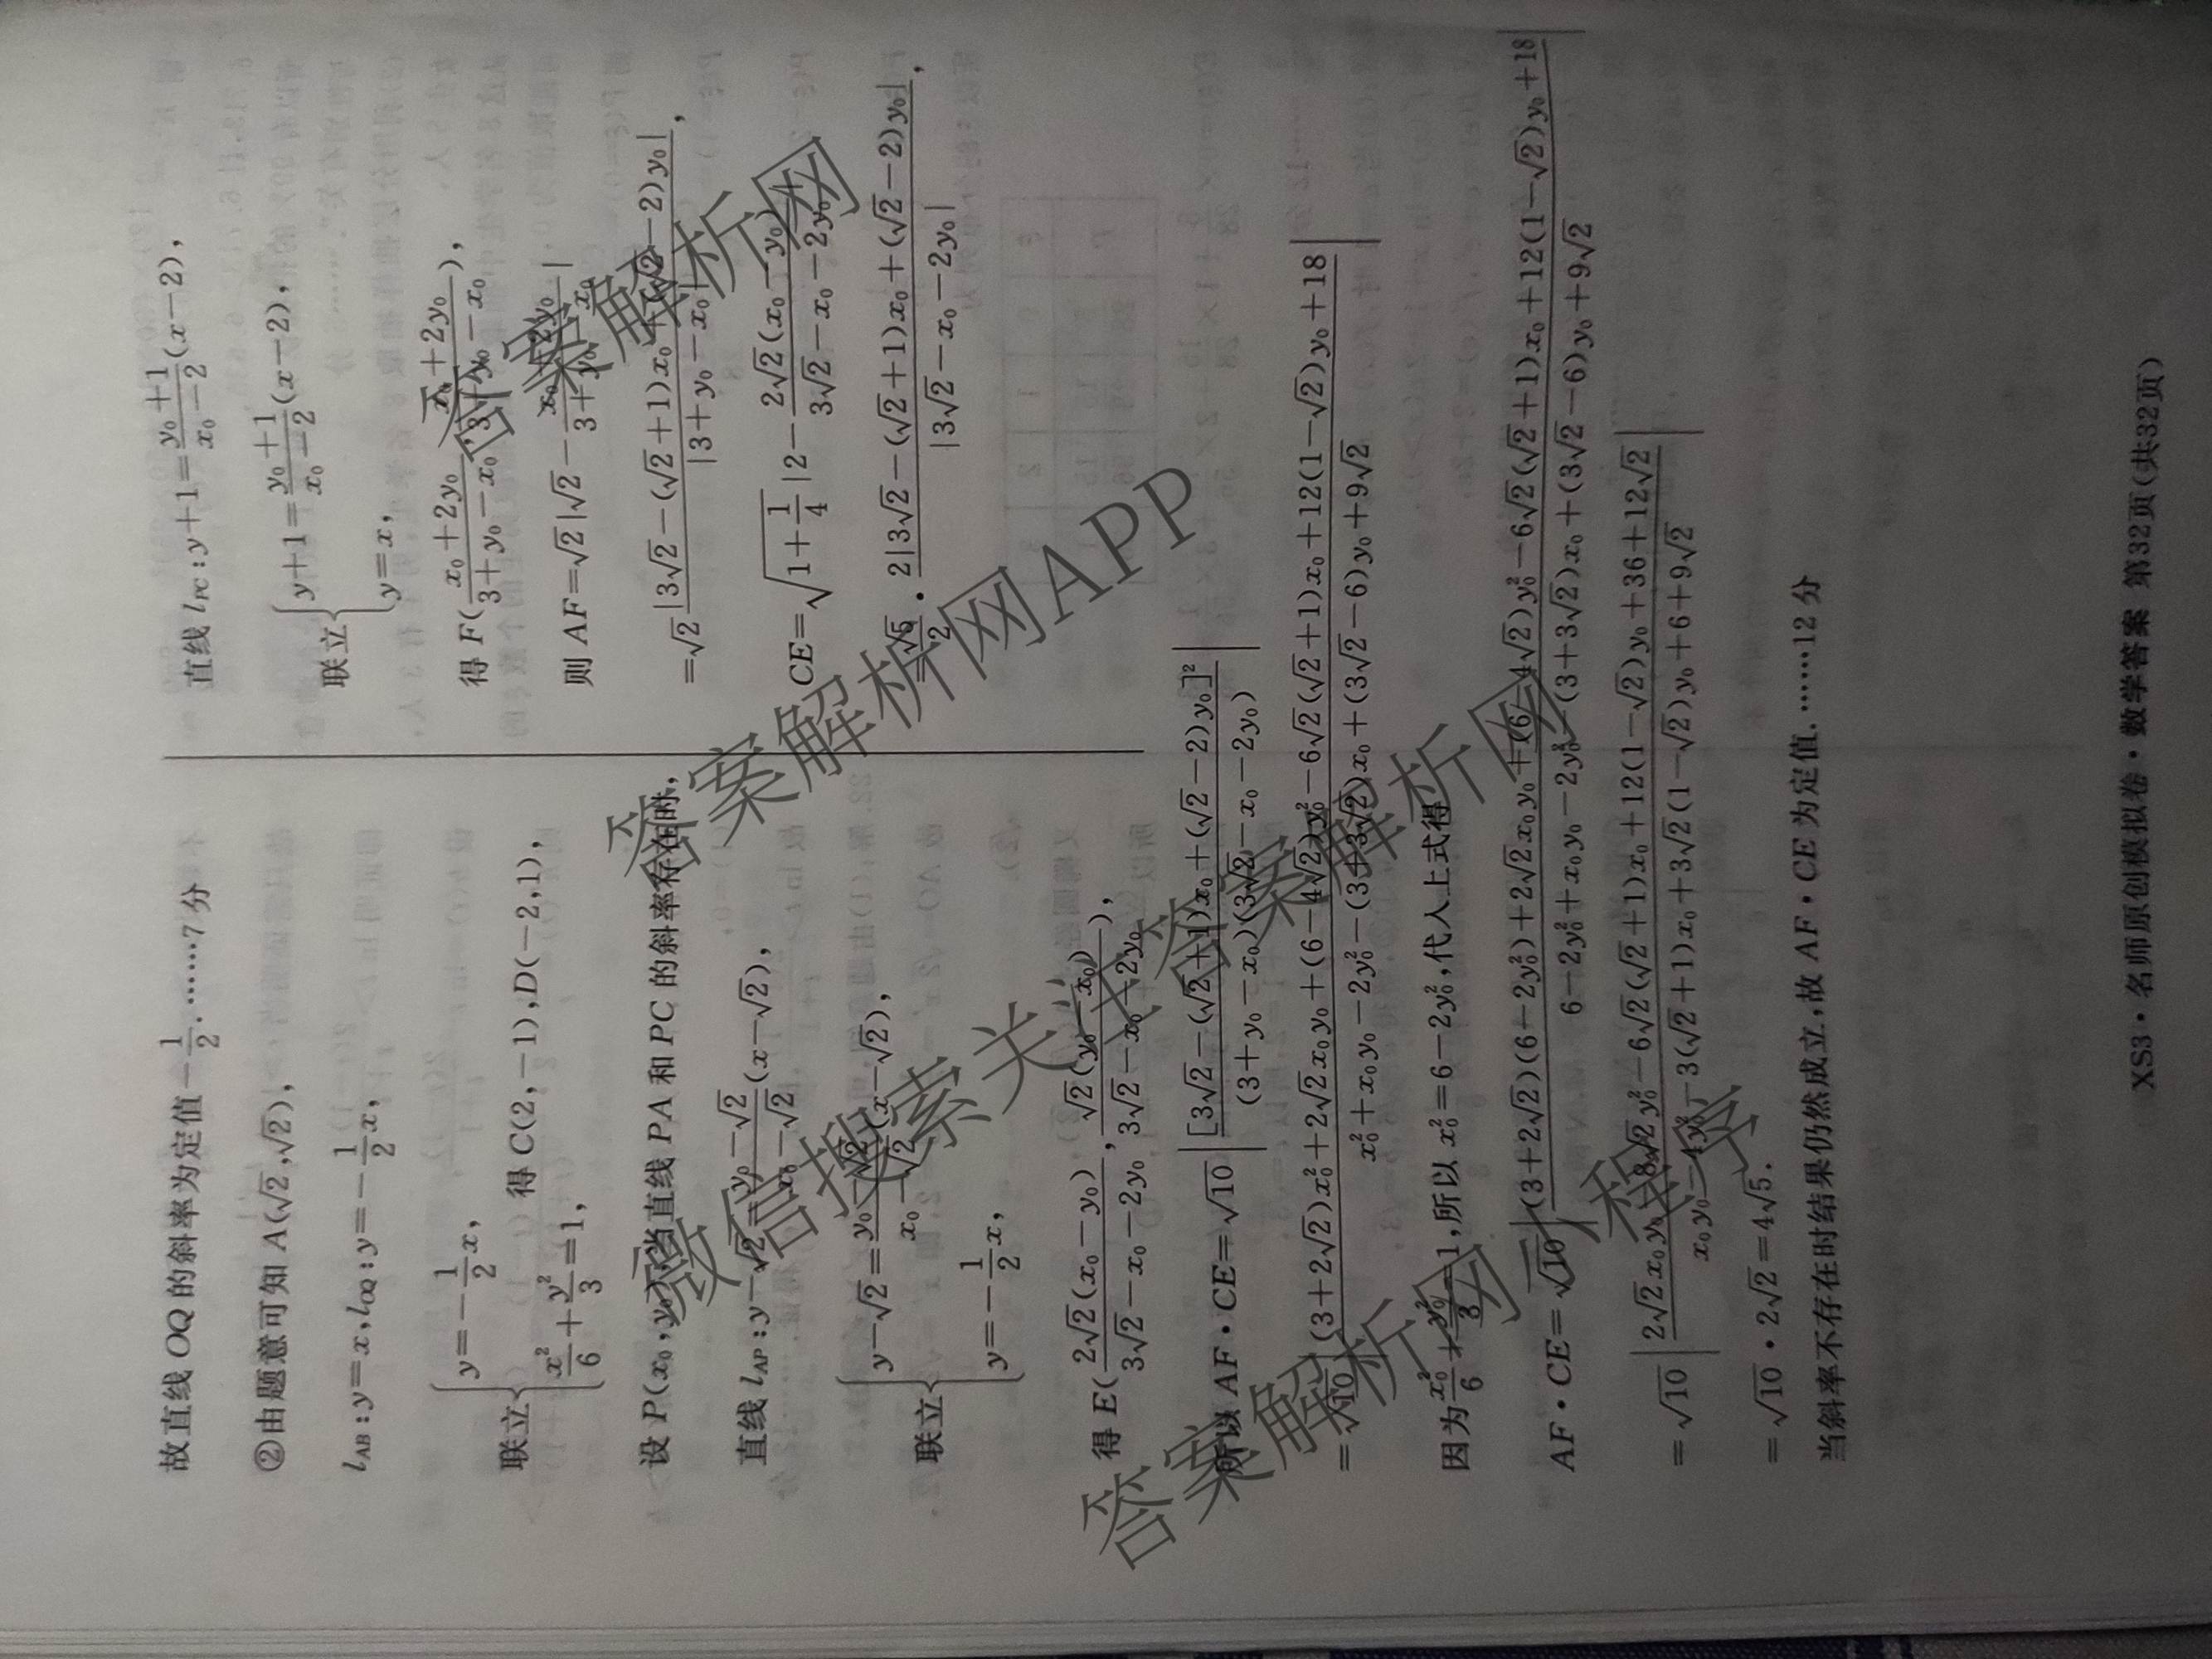 故直线 OQ 的斜率为定值 -\frac{1}{2}. ……7分
②由题意可知 A(√2,√2),
l_{AB}:y=x,l_{OQ}:y=-\frac{1}{2}x,
联立{y=-\frac{1}{2}x, \frac{x^2}{6}+\frac{y^2}{3}=1, 得 C(2,-1),D(-2,1),
设 P(x_0,y_0),当直线 PA 和 PC 的斜率存在时,
直线 l_{AP}:y-√2=\frac{y_0-√2}{x_0-√2}(x-√2),
联立{y-√2=\frac{y_0-√2}{x_0-√2}(x-√2), y=-\frac{1}{2}x,
得 E(\frac{2√2(x_0-y_0)}{3√2-x_0-2y_0},\frac{√2(y_0-x_0)}{3√2-x_0-2y_0}),
直线 l_{PC}:y+1=\frac{y_0+1}{x_0-2}(x-2),
联立{y+1=\frac{y_0+1}{x_0-2}(x-2), y=x,
得 F(\frac{x_0+2y_0}{3+y_0-x_0},\frac{x_0+2y_0}{3+y_0-x_0}),
则 AF=√2|√2-\frac{x_0+2y_0}{3+y_0-x_0}|
=√2\frac{|3√2-(√2+1)x_0+(√2-2)y_0|}{|3+y_0-x_0|},
CE=\sqrt{1+\frac{1}{4}}|2-\frac{2√2(x_0-y_0)}{3√2-x_0-2y_0}|
=\frac{√5}{2}·\frac{2|3√2-(√2+1)x_0+(√2-2)y_0|}{|3√2-x_0-2y_0|},
所以 AF·CE=√10|\frac{[3√2-(√2+1)x_0+(√2-2)y_0]^2}{(3+y_0-x_0)(3√2-x_0-2y_0)}|
=√10|\frac{(3+2√2)x_0^2+2√2x_0y_0+(6-4√2)y_0^2-6√2(√2+1)x_0+12(1-√2)y_0+18}{x_0^2+x_0y_0-2y_0^2-(3+3√2)x_0+(3√2-6)y_0+9√2}|
因为\frac{x_0^2}{6}+\frac{y_0^2}{3}=1,所以 x_0^2=6-2y_0^2,代入上式得
AF·CE=√10|\frac{(3+2√2)(6-2y_0^2)+2√2x_0y_0+(6-4√2)y_0^2-6√2(√2+1)x_0+12(1-√2)y_0+18}{6-2y_0^2+x_0y_0-2y_0^2-(3+3√2)x_0+(3√2-6)y_0+9√2}|
=√10|\frac{2√2x_0y_0-8√2y_0^2-6√2(√2+1)x_0+12(1-√2)y_0+36+12√2}{x_0y_0-4y_0^2-3(√2+1)x_0+3√2(1-√2)y_0+6+9√2}|
=√10·2√2=4√5.
当斜率不存在时结果仍然成立,故 AF·CE 为定值. ……12分
XS3·名师原创模拟卷·数学答案 第32页(共32页)
答案解析网APP
答案解析网
微信搜索关注答案解析网
答案解析网